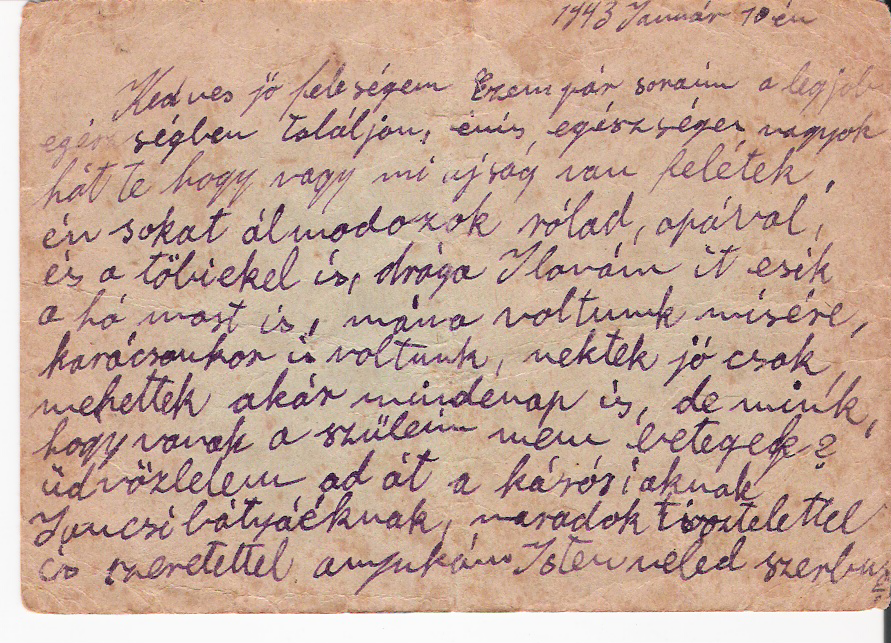 1943 Január 10 én
Kedves jó feleségem Ezem pár soraim a legjob
egés ségben találjon, énis egészséges vagyok
hát te hogy vagy mi ujság van felétek,
én sokat álmodozok rólad, apával,
és a töbiekel is, drága Ilonám it esik
a hó most is, máma voltunk misére,
karácsonkor is voltunk, nektek jó csak
mehettek akár mindenap is, de mink,
hogy vanak a szüleim nem betegek?
üdvözletem ad át a
Jancsi bátyáéknak, maradok tisztelettel
és szeretettel anyukám Isten veled szerbusz